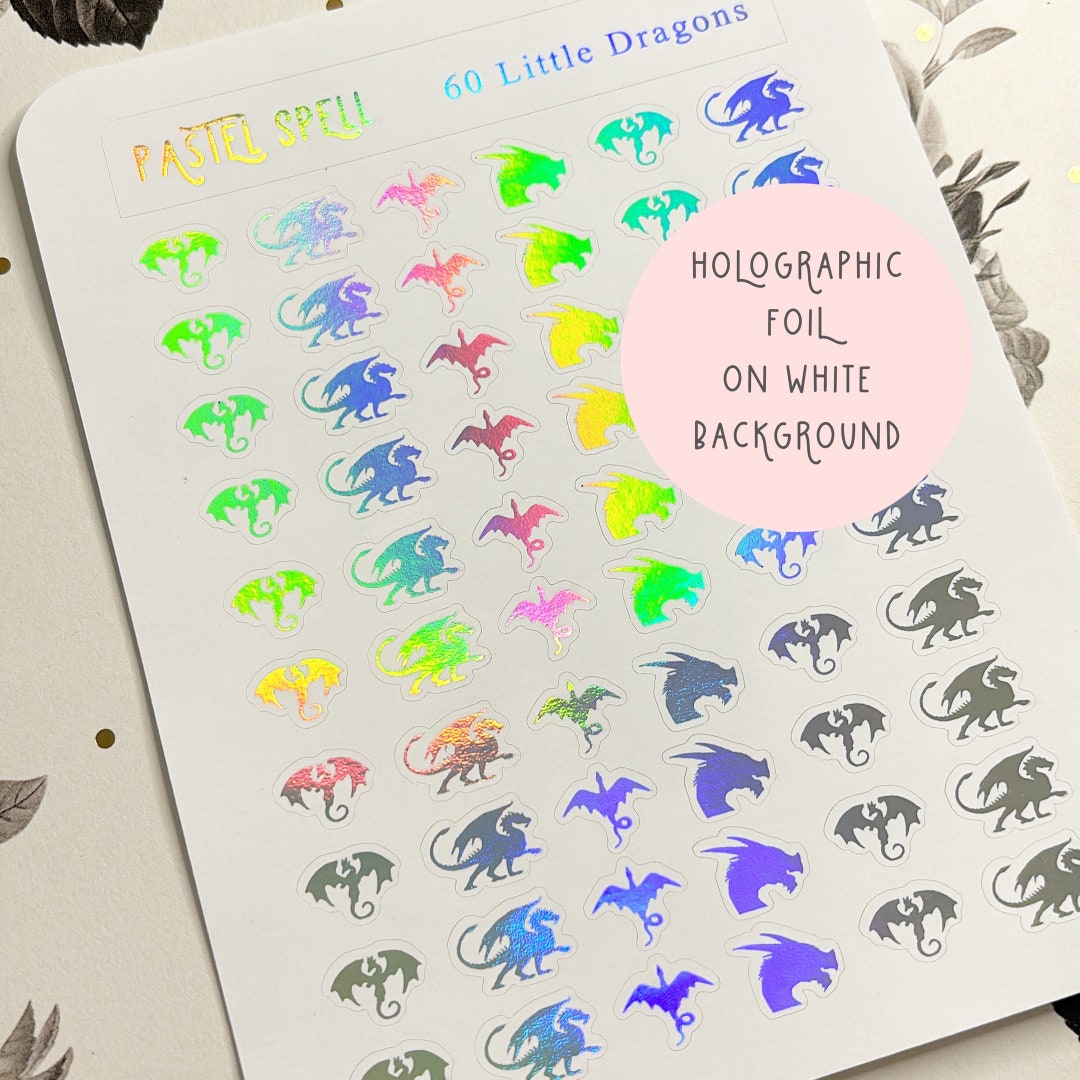 PASTEL SPELL
60 Little Dragons
HOLOGRAPHIC
FOIL
ON WHITE
BACKGROUND